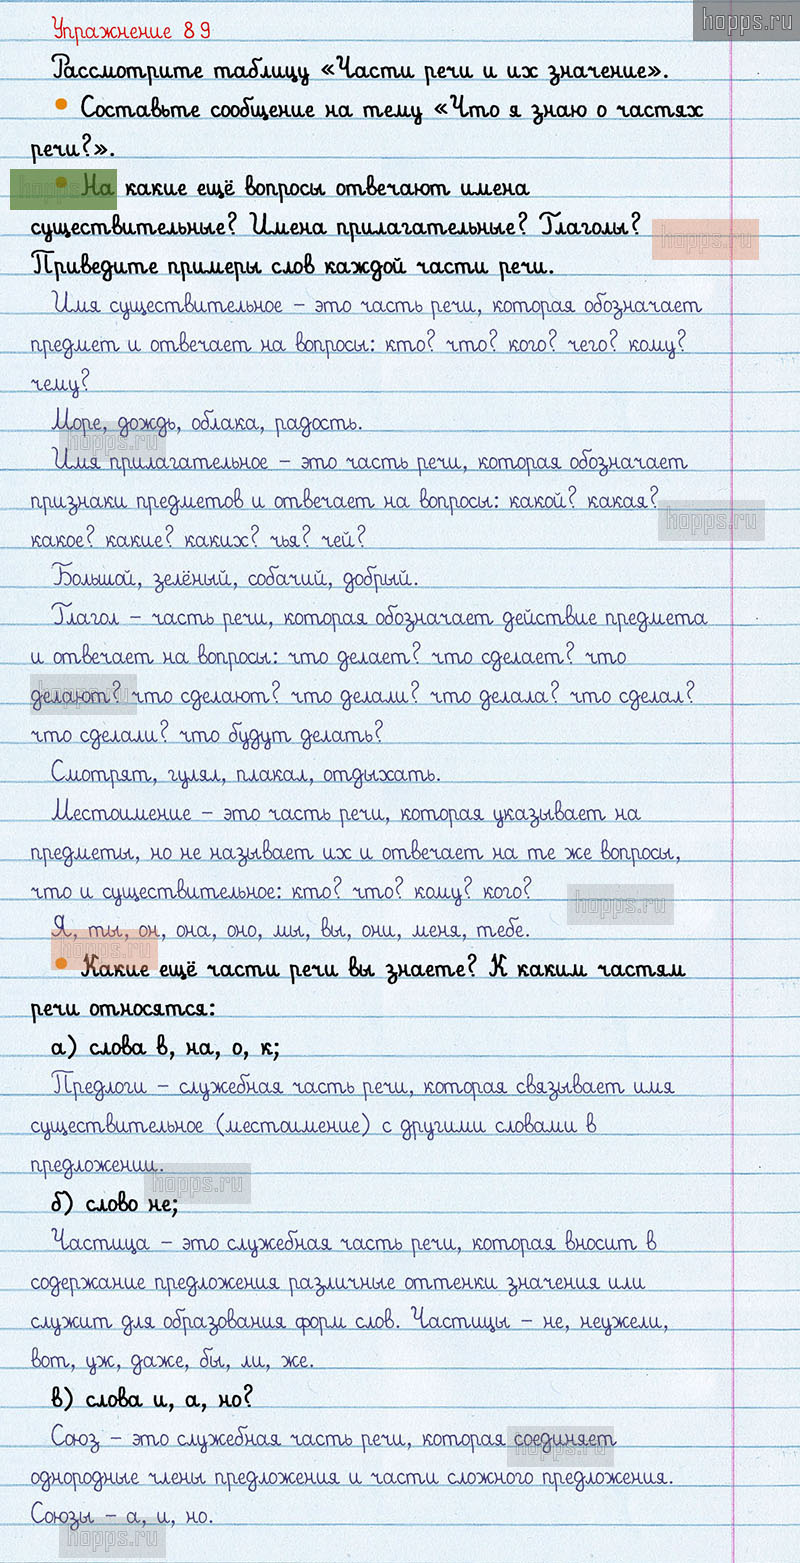 hopps.ru
Упражнение 89
Рассмотрите таблицу «Части речи и их значение».
• Составьте сообщение на тему «Что я знаю о частях
речи?».
• На какие ещё вопросы отвечают имена
существительные? Имена прилагательные? Глаголы?
Приведите примеры слов каждой части речи.
Имя существительное – это часть речи, которая обозначает
предмет и отвечает на вопросы: кто? что? кого? чего? кому?
чему?
Море, дождь, облака, радость.
Имя прилагательное – это часть речи, которая обозначает
признаки предметов и отвечает на вопросы: какой? какая?
какое? какие? каких? чья? чей?
Большой, зелёный, собачий, добрый.
Глагол – часть речи, которая обозначает действие предмета
и отвечает на вопросы: что делает? что сделает? что
делают? что сделают? что делали? что делала? что сделал?
что сделали? что будут делать?
Смотрят, гулял, плакал, отдыхать.
Местоимение – это часть речи, которая указывает на
предметы, но не называет их и отвечает на те же вопросы,
что и существительное: кто? что? кому? кого?
Я, ты, он, она, оно, мы, вы, они, меня, тебе.
• Какие ещё части речи вы знаете? К каким частям
речи относятся:
а) слова в, на, о, к;
Предлоги – служебная часть речи, которая связывает имя
существительное (местоимение) с другими словами в
предложении.
б) слово не;
Частица – это служебная часть речи, которая вносит в
содержание предложения различные оттенки значения или
служит для образования форм слов. Частицы – не, неужели,
вот, уж, даже, бы, ли, же.
в) слова и, а, но?
Союз – это служебная часть речи, которая соединяет
однородные члены предложения и части сложного предложения.
Союзы – а, и, но.
hopps.ru
hopps.ru
hopps.ru
hopps.ru
hopps.ru
hopps.ru
hopps.ru
hopps.ru
hopps.ru